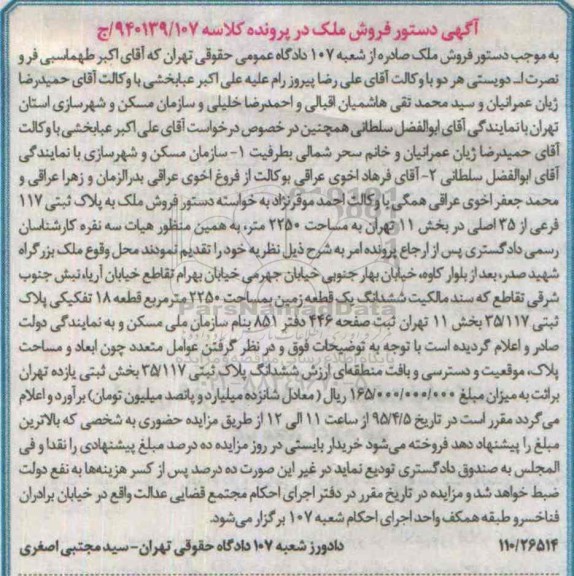 آگهی دستور فروش ملک در پرونده کلاسه ۹۴۰۱۳۹/۱۰۷/ج
به موجب دستور فروش ملک صادره از شعبه ۱۰۷ دادگاه عمومی حقوقی تهران که آقای اکبر طهماسبی فر و
نصرت اله دویستی هر دو با وکالت آقای علی رضا پیروز رام علیه علی اکبر عبابخشی با وکالت آقای حمیدرضا
ژیان عمرانیان و سید محمد تقی هاشمیان اقبالی و احمدرضا خلیلی و سازمان مسکن و شهرسازی استان
تهران با نمایندگی آقای ابوالفضل سلطانی همچنین در خصوص درخواست آقای علی اکبر عبابخشی با وکالت
آقای حمیدرضا ژیان عمرانیان و خانم سحر شمالی بطرفیت ۱- سازمان مسکن و شهرسازی با نمایندگی
آقای ابوالفضل سلطانی ۲- آقای فرهاد اخوی عراقی بوکالت از فروغ اخوی عراقی بدرالزمان و زهرا عراقی و
محمد جعفر اخوی عراقی همگی با وکالت احمد موقرنژاد به خواسته دستور فروش ملک به پلاک ثبتی ۱۱۷
فرعی از ۳۵ اصلی در بخش ۱۱ تهران به مساحت ۲۲۵۰ متر، به همین منظور هیات سه نفره کارشناسان
رسمی دادگستری پس از ارجاع پرونده امر به شرح ذیل نظریه خود را تقدیم نمودند محل وقوع ملک بزرگراه
شهید صدر، بعد از بلوار کاوه، خیابان بهار جنوبی خیابان جهرمی خیابان بهرام تقاطع خیابان آریا، نبش جنوب
شرقی تقاطع که سند مالکیت ششدانگ یک قطعه زمین بمساحت ۲۲۵۰ مترمربع قطعه ۱۸ تفکیکی پلاک
ثبتی ۳۵/۱۱۷ بخش ۱۱ تهران ثبت صفحه ۴۴۶ دفتر ۸۵۱ بنام سازمان ملی مسکن و به نمایندگی دولت
صادر و اعلام گردیده است با توجه به توضیحات فوق و در نظر گرفتن عوامل متعدد چون ابعاد و مساحت
پلاک، موقعیت و دسترسی و بافت منطقه‌ای ارزش ششدانگ پلاک ثبتی ۳۵/۱۱۷ بخش ثبتی یازده تهران
برائت به میزان مبلغ ۱۶۵/۰۰۰/۰۰۰/۰۰۰ ریال (معادل شانزده میلیارد و پانصد میلیون تومان) برآورد و اعلام
می‌گردد مقرر است در تاریخ ۹۵/۴/۵ از ساعت ۱۱ الی ۱۲ از طریق مزایده حضوری به شخصی که بالاترین
مبلغ را پیشنهاد دهد فروخته می‌شود خریدار بایستی در روز مزایده ده درصد مبلغ پیشنهادی را نقدا و فی
المجلس به صندوق دادگستری تودیع نماید در غیر این صورت ده درصد پس از کسر هزینه‌ها به نفع دولت
ضبط خواهد شد و مزایده در تاریخ مقرر در دفتر اجرای احکام مجتمع قضایی عدالت واقع در خیابان برادران
فناخسرو طبقه همکف واحد اجرای احکام شعبه ۱۰۷ برگزار می‌شود.
۱۱۰/۲۶۵۱۴ دادورز شعبه ۱۰۷ دادگاه حقوقی تهران- سید مجتبی اصغری